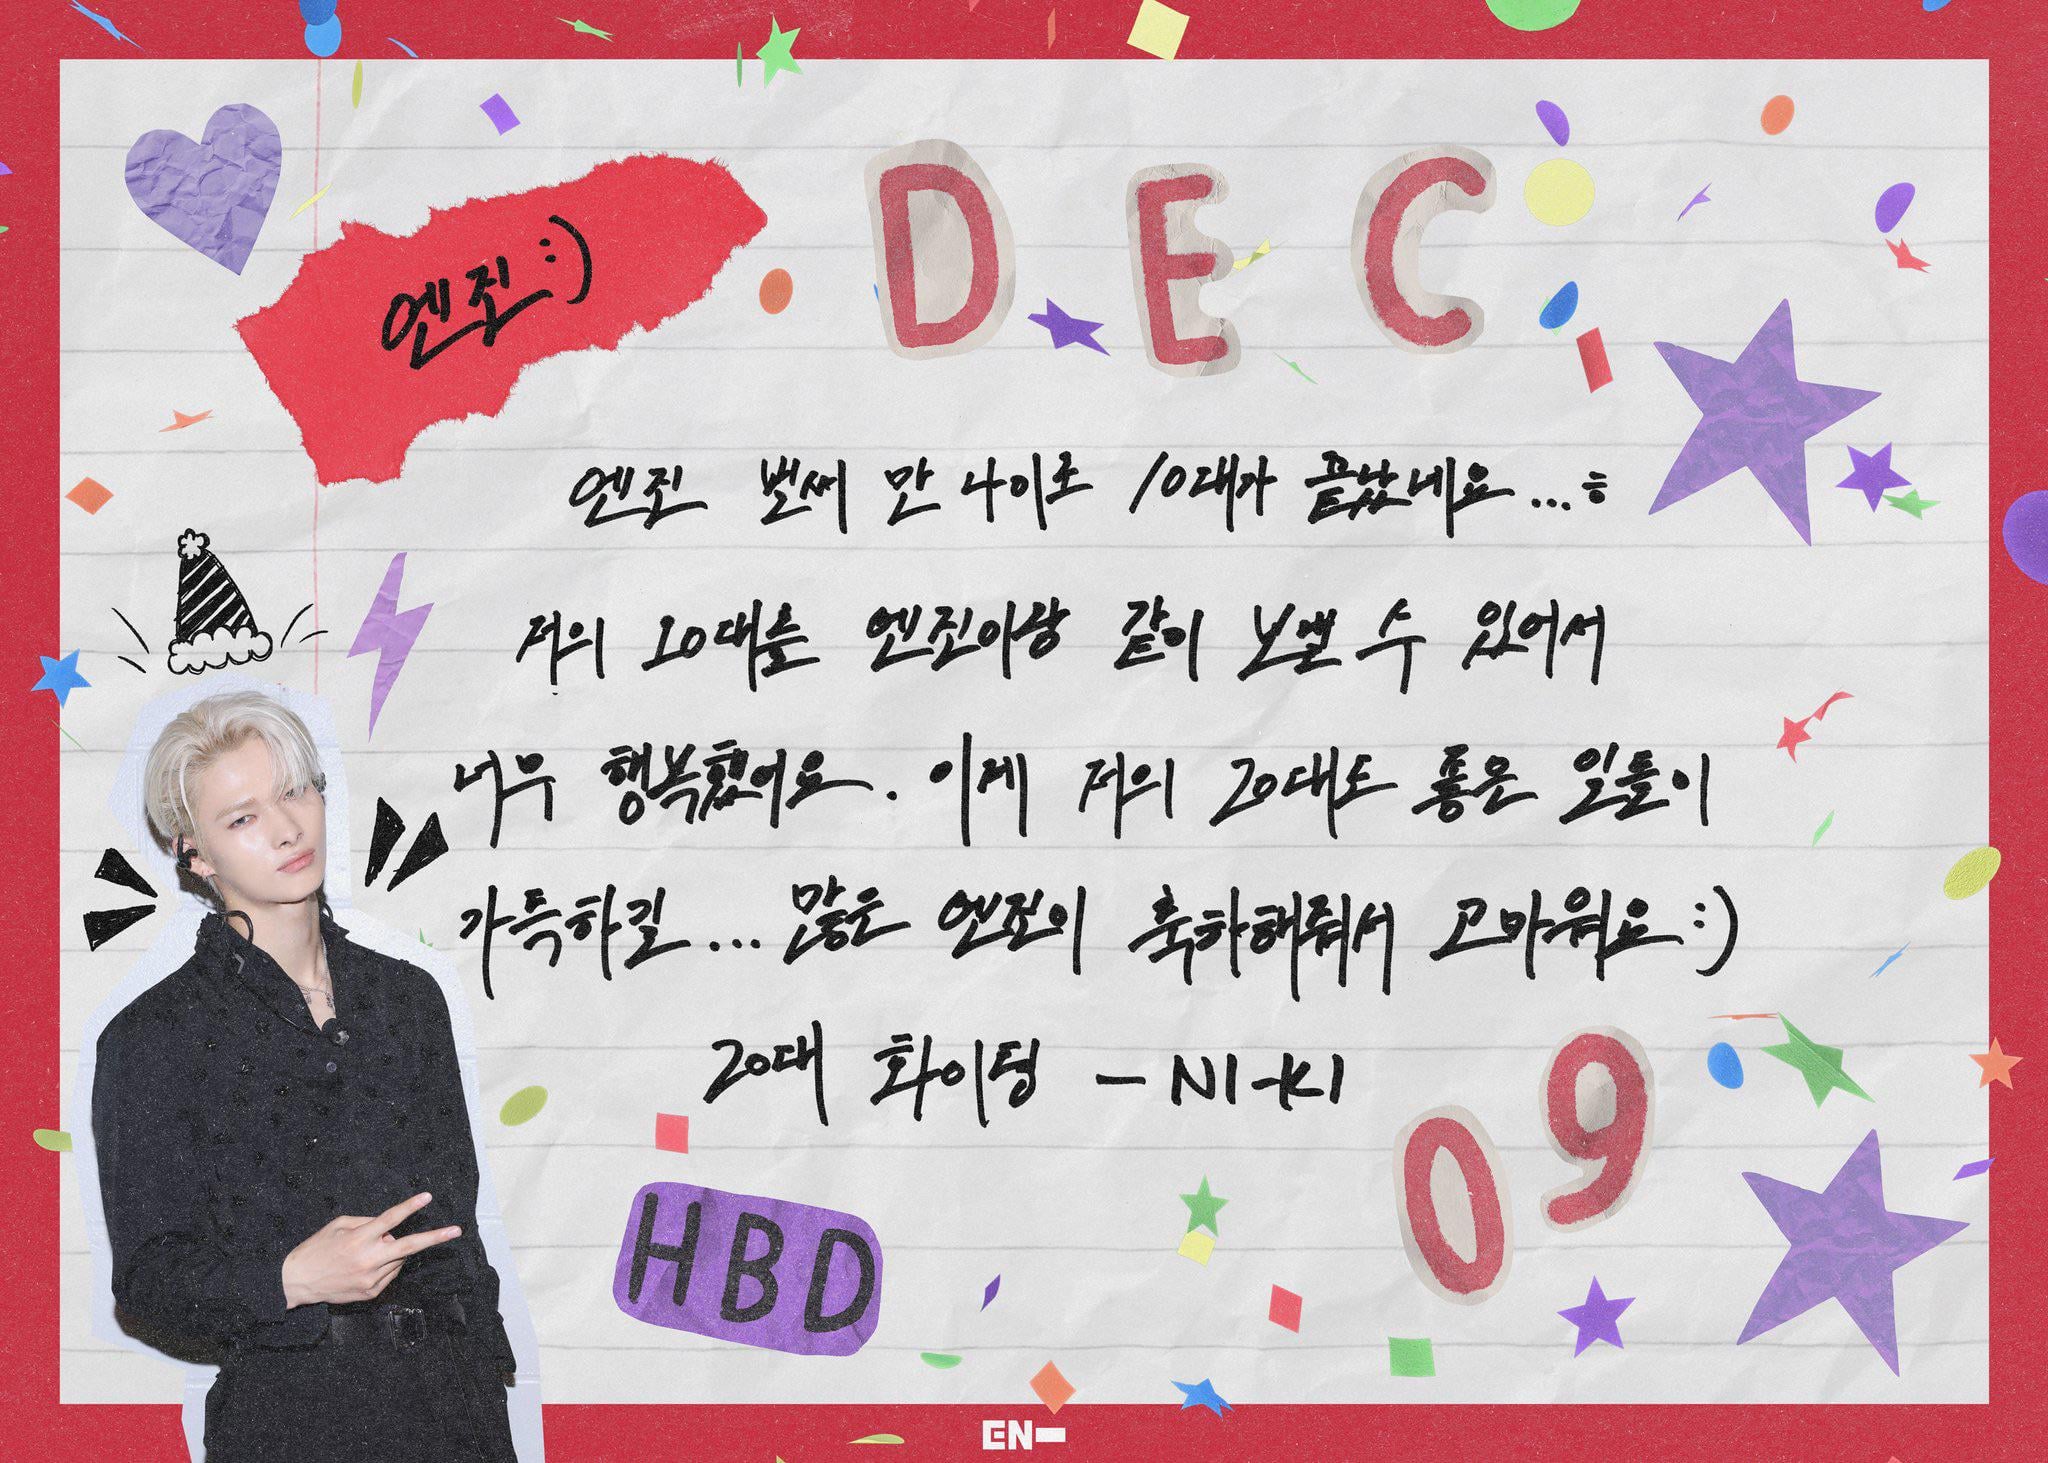 엔진 :)
DEC
엔진 벌써 만 나이로 10대가 끝났네요...ㅎ
저의 10대를 엔진이랑 같이 보낼 수 있어서
너무 행복했어요. 이제 저의 20대도 좋은 일들이
가득하길... 많은 엔진이 축하해줘서 고마워요 :)
20대 화이팅 - NI-KI
09
HBD
EN-